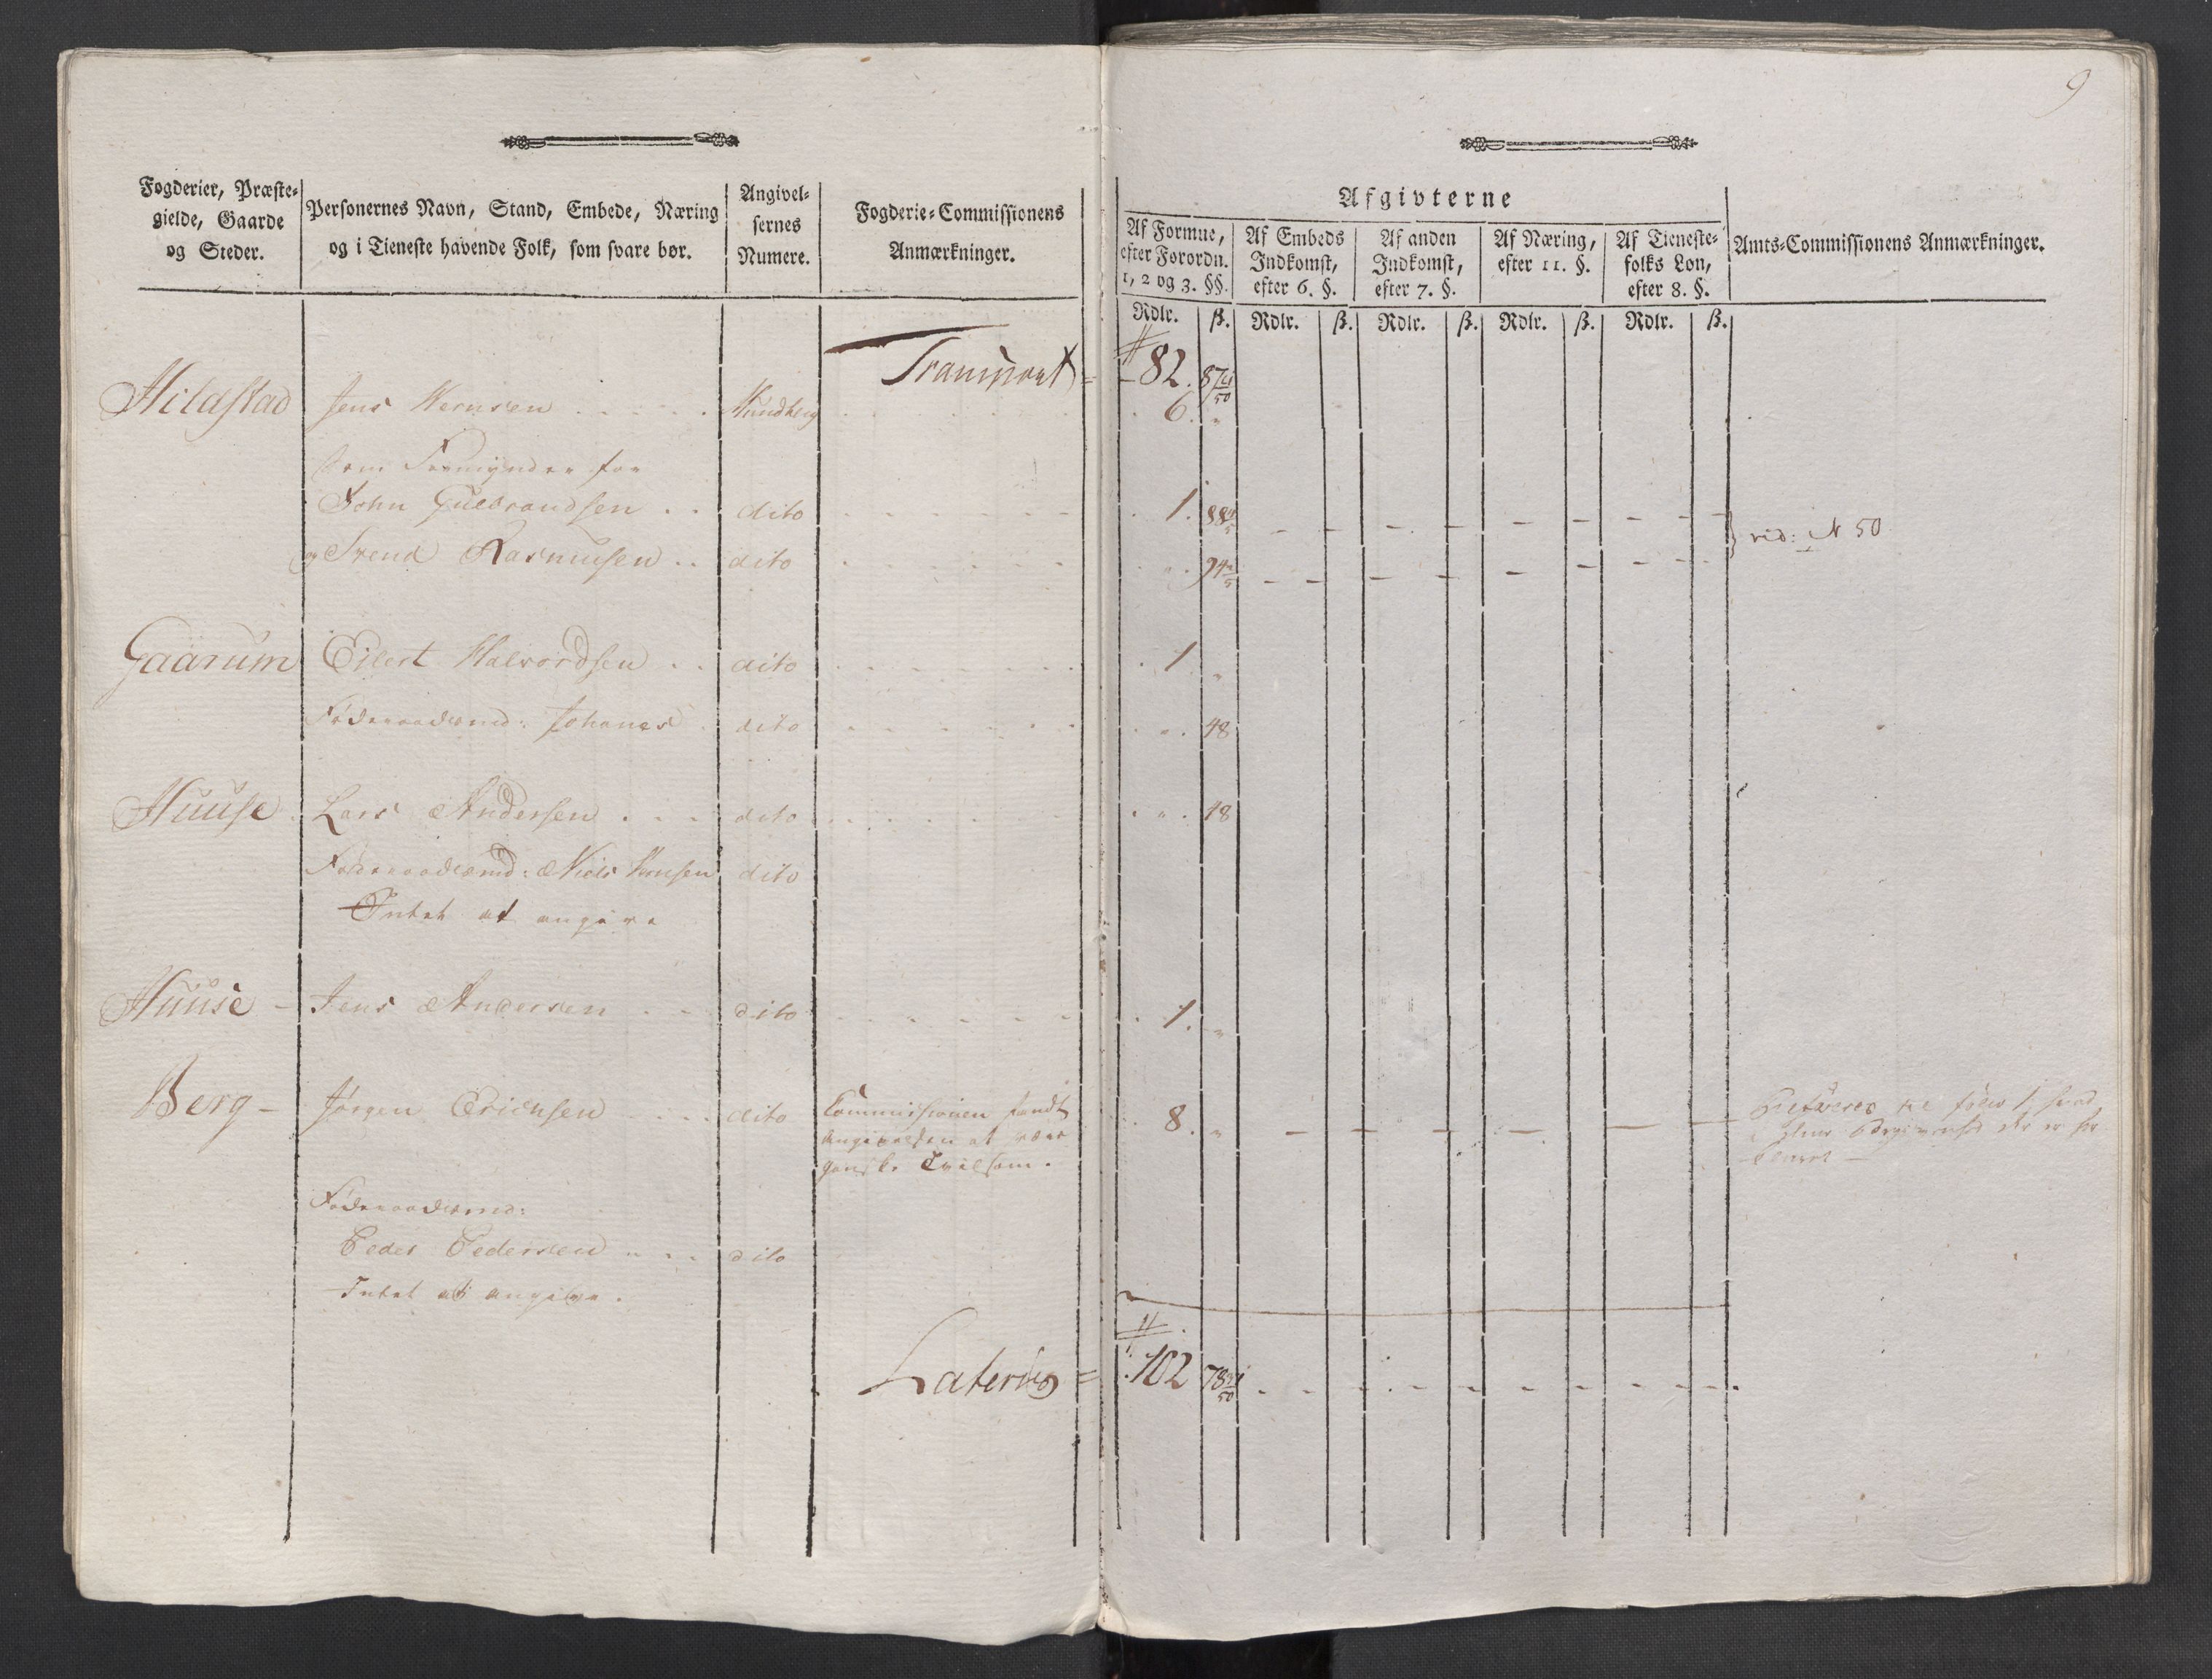 9
Fogderier, Præste-
gielde, Gaarde
og Steder.
Personernes Navn, Stand, Embede, Næring
og i Tieneste havende Folk, som svare bør.
Angivel-
sernes
Numere.
Fogderie-Commissionens
Anmærkninger.
Afgivterne
Af Formue,
efter Forordn.
1, 2 og 3. §§.
Af Embeds
Indkomst,
efter 6. §.
Af anden
Indkomst,
efter 7. §.
Af Næring,
efter 11. §.
Af Tieneste-
folks Løn,
efter 8. §.
Amts-Commissionens Anmærkninger.
Rdlr. ß. Rdlr. ß. Rdlr. ß. Rdlr. ß. Rdlr. ß.
Transport = 82. 87 41/50
Hildstad Jens Hernsen Mundtlig 6. "
Som Formynder for
John Gulbrandsen dito 1. 88 4/5
og Svend Rasmusen dito " 94 2/5
vid: N 50
Gaarum Eilert Halvordsen dito 1 "
Föderaadsmd: Johanes dito " 48
Huuse Lars Andersen dito " 48
Föderaadsmd: Niels Hansen dito
Intet at angive
Huuse - Jens Andersen dito 1. "
Berg - Jörgen Erichsen dito Commissionen fandt 8. "
angivelsen at være
ganske Tvilsom.
Föderaadsmd:
Peder Pedersen dito
Intet at angive.
Lateris = 102 78